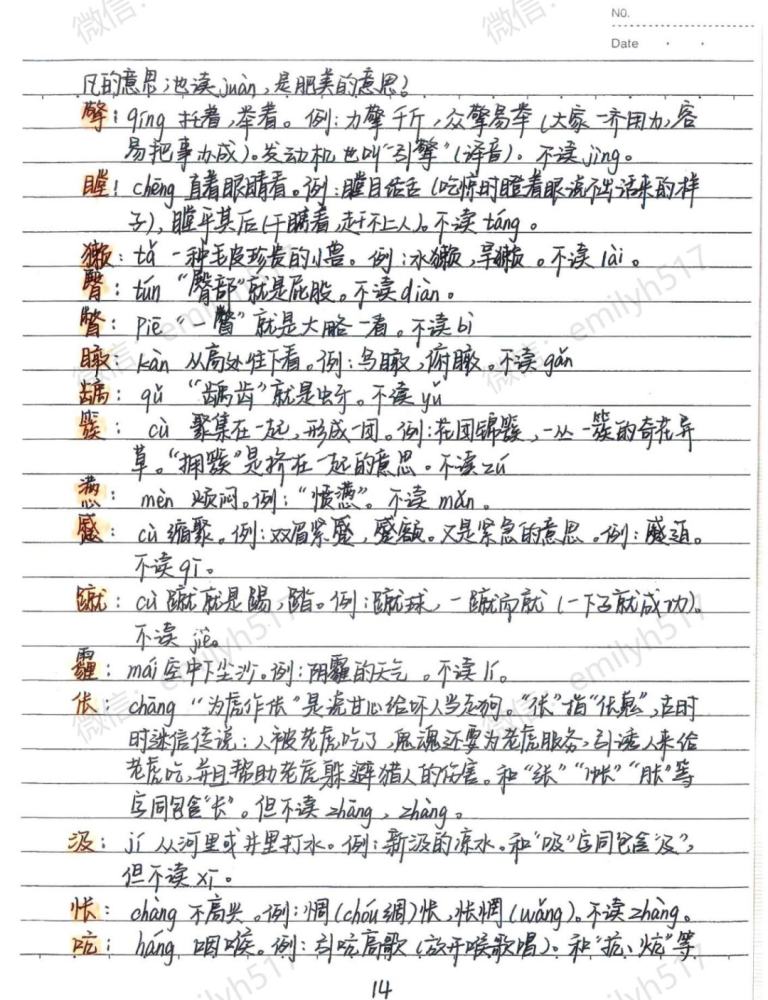 NO.
Date
凡的意思;也读juàn,是肥美的意思?
擎:qíng 托着,举着。例:力擎千斤,众擎易举(大家一齐用力,容
易把事办成)。发动机也叫"引擎"(译音)。不读jìng。
瞠:chēng 直着眼睛看。例:瞠目结舌(吃惊时瞪着眼说不出话来的样
子),瞠乎其后(干瞪着,赶不上人)。不读táng。
獭:tǎ 一种毛皮珍贵的小兽。例:水獭,旱獭。不读lài。
臀:tún "臀部"就是屁股。不读diàn。
瞥:piē "一瞥"就是大略一看。不读bì
瞰:kàn 从高处往下看。例:鸟瞰,俯瞰。不读gǎn
龋:qǔ "龋齿"就是虫牙。不读yǔ
簇:cù 聚集在一起,形成一团。例:花团锦簇,一丛一簇的奇花异
草。"拥簇"是挤在一起的意思。不读zú
懑:mèn 烦闷。例:"愤懑"。不读mǎn。
蹙:cù 缩聚。例:双眉紧蹙,蹙额。又是紧急的意思。例:蹙迫。
不读qī。
蹴:cù 蹴就是踢,踏。例:蹴球,一蹴而就(一下子就成功)。
不读jiù。
霾:mái 空中下尘沙。例:阴霾的天气。不读lí。
伥:chāng "为虎作伥"是说甘心给坏人当走狗。"伥"指"伥鬼",古时
时迷信传说:人被老虎吃了,鬼魂还要为老虎服务,引诱人来给
老虎吃,并且帮助老虎躲避猎人的伤害。和"张""帐""胀"等
字同包含"长"。但不读zhāng,zhàng。
汲:jí 从河里或井里打水。例:新汲的凉水。和"吸"字同包含"及",
但不读xī。
怅:chàng 不高兴。例:惆(chóu绸)怅,怅惘(wǎng)。不读zhàng。
吭:háng 咽喉。例:引吭高歌(放开喉歌唱)。和"抗、炕"等
14
微信:emilyh517
微信:emilyh517
微信:emilyh517
微信:emilyh517